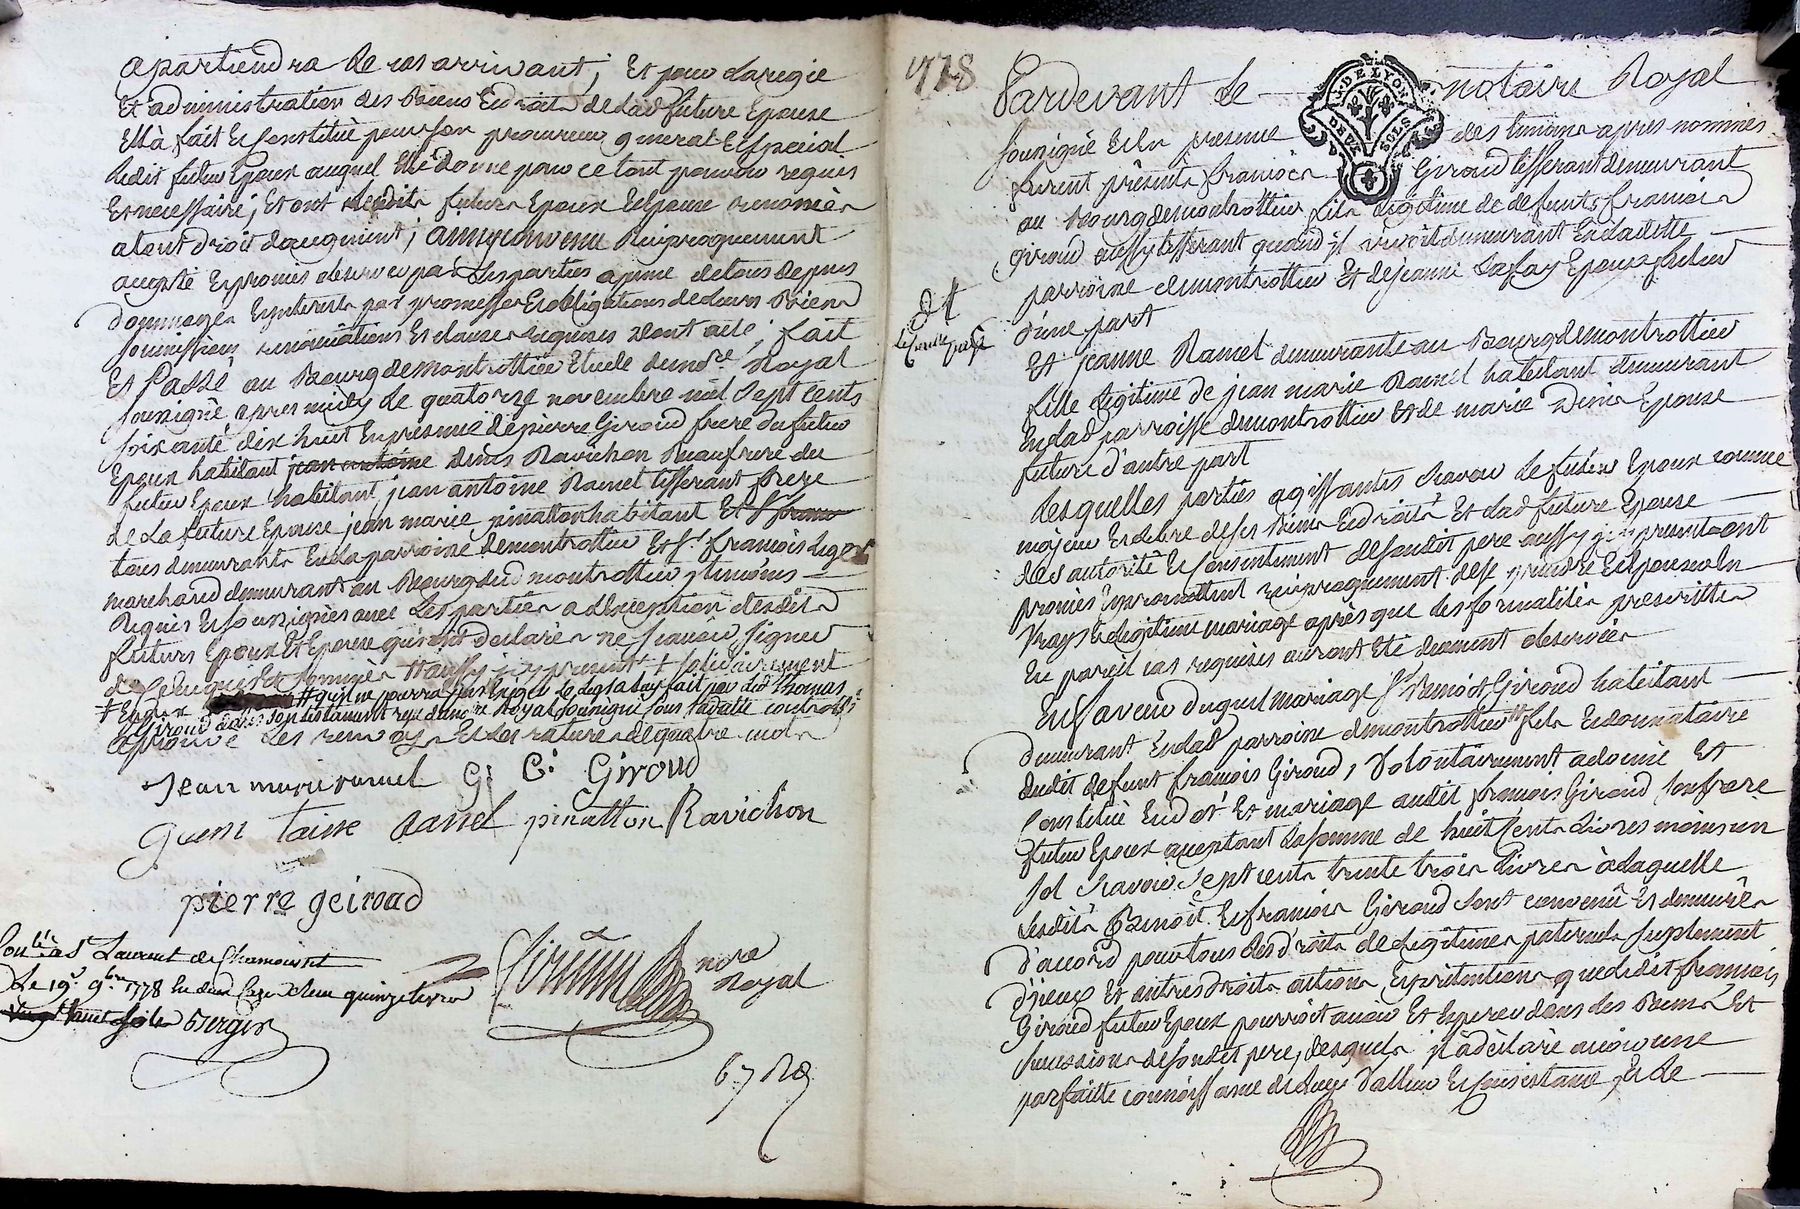 apartiendra de cas arrivant ; Et pour la regie
Et administration des Biens Et droits de lad future Epouse
Ella fait Et Constitué pour son procureur general Et special
ledit futur Epoux auquel Elle donne pour ce tout pouvoir requis
Et necessaire ; Et ont lesdits futurs Epoux Et Epouse renoncés
a tout droit daugment ; ainsy convenu Reciproquement
accepté Et promis observer par les parties a peine de tous depens
dommages Et interests par promesses Et obligations de leurs Biens
soumissions renonciations Et clauses requises dont acte ; fait
Et Passé au Bourg de montrottier Etude du nore Royal
soussigné apres midy le quatorze novembre mil sept cents
soixante dix huit En presence de pierre Giroud frere du futur
Epoux habitant jean antoine denis Ravichon Beaufrere du
futur Epoux habitant jean antoine Ramel tisserant frere
de La future Epouse jean marie pinatton habitant Et Sr franc
tous demeurants En la parroisse de montrottier Et Sr francois
marchand demeurant au Bourg dud montrottier, temoins
Requis Et soussignés avec Les parties a l'exception desdits
futurs Epoux Et Epouse qui ont declarés ne scavoir signer
de ce Enquis Et sommés # aussy icy present + solidairement
# qu'il ne pourra Exiger le legs a luy fait par led Thomas
Giroud dans son testament reçu dud nore Royal soussigné sous sa datte controllé
aprouvé Les renvoys Et Les ratures de quatre mots
Jean marie ramel G: C: Giroud
pinatton Ravichon
pierre geiroud
Conlé à St Laurent de Chamousset
Le 19e 9bre 1778 quinze livres
Berger
nore
Royal
67 Rd
1778
Pardevant Le notaire Royal
G. DE LYON
DEUX SOLS
soussigné Et En presence des temoins apres nommés
furent présents francois Giroud tisserant demeurant
au Bourg de montrottier fils Legitime de defunts francois
giroud aussy tisserant quand il vivoit demeurant En ladette
parroisse de montrottier Et de jeanne Lafay Epoux futur
d'une part
Et jeanne Ramel demeurante au Bourg de montrottier
fille Legitime de jean marie Ramel habitant demeurant
En lad parroisse de montrottier Et de marie Epouse
future d'autre part
Lesquelles parties agissantes scavoir le futur Epoux comme
majeur Et libre de ses Biens Et droits Et lad future Epouse
de l'autorité Et Consentement de sondit pere aussy icy present ont
promis Et promettent reciproquement de se prendre Et Epouser En
vrays Et Legitime mariage après que les formalités prescrittes
En pareil cas requises auront Eté deument observées
En faveur duquel mariage Sr Benoit Giroud habitant
demeurant En lad parroisse de montrottier # fils Et donnataire
dudit defunt francois Giroud, Volontairement a donné Et
Constitué En dot Et mariage audit francois Giroud son frere
futur Epoux acceptant La somme de huit Cents Livres moins un
sol scavoir sept cents trente trois Livres à laquelle
lesdits Benoit Et francois Giroud sont convenû Et demeurés
d'accord pour tous les droits de Legitimes paternels suplement
d'iceux Et autres droits actions Et pretentions que ledit francois
Giroud futur Epoux pourroit avoir Et Esperer dans les Biens Et
successions de sondit pere, desquels il à déclaré avoir une
parfaitte connoissance de Leur valleur Et Consistance, Et de